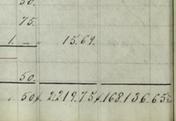 50.
75.
1. 15.69.
50.
50 2219.75 168136.65